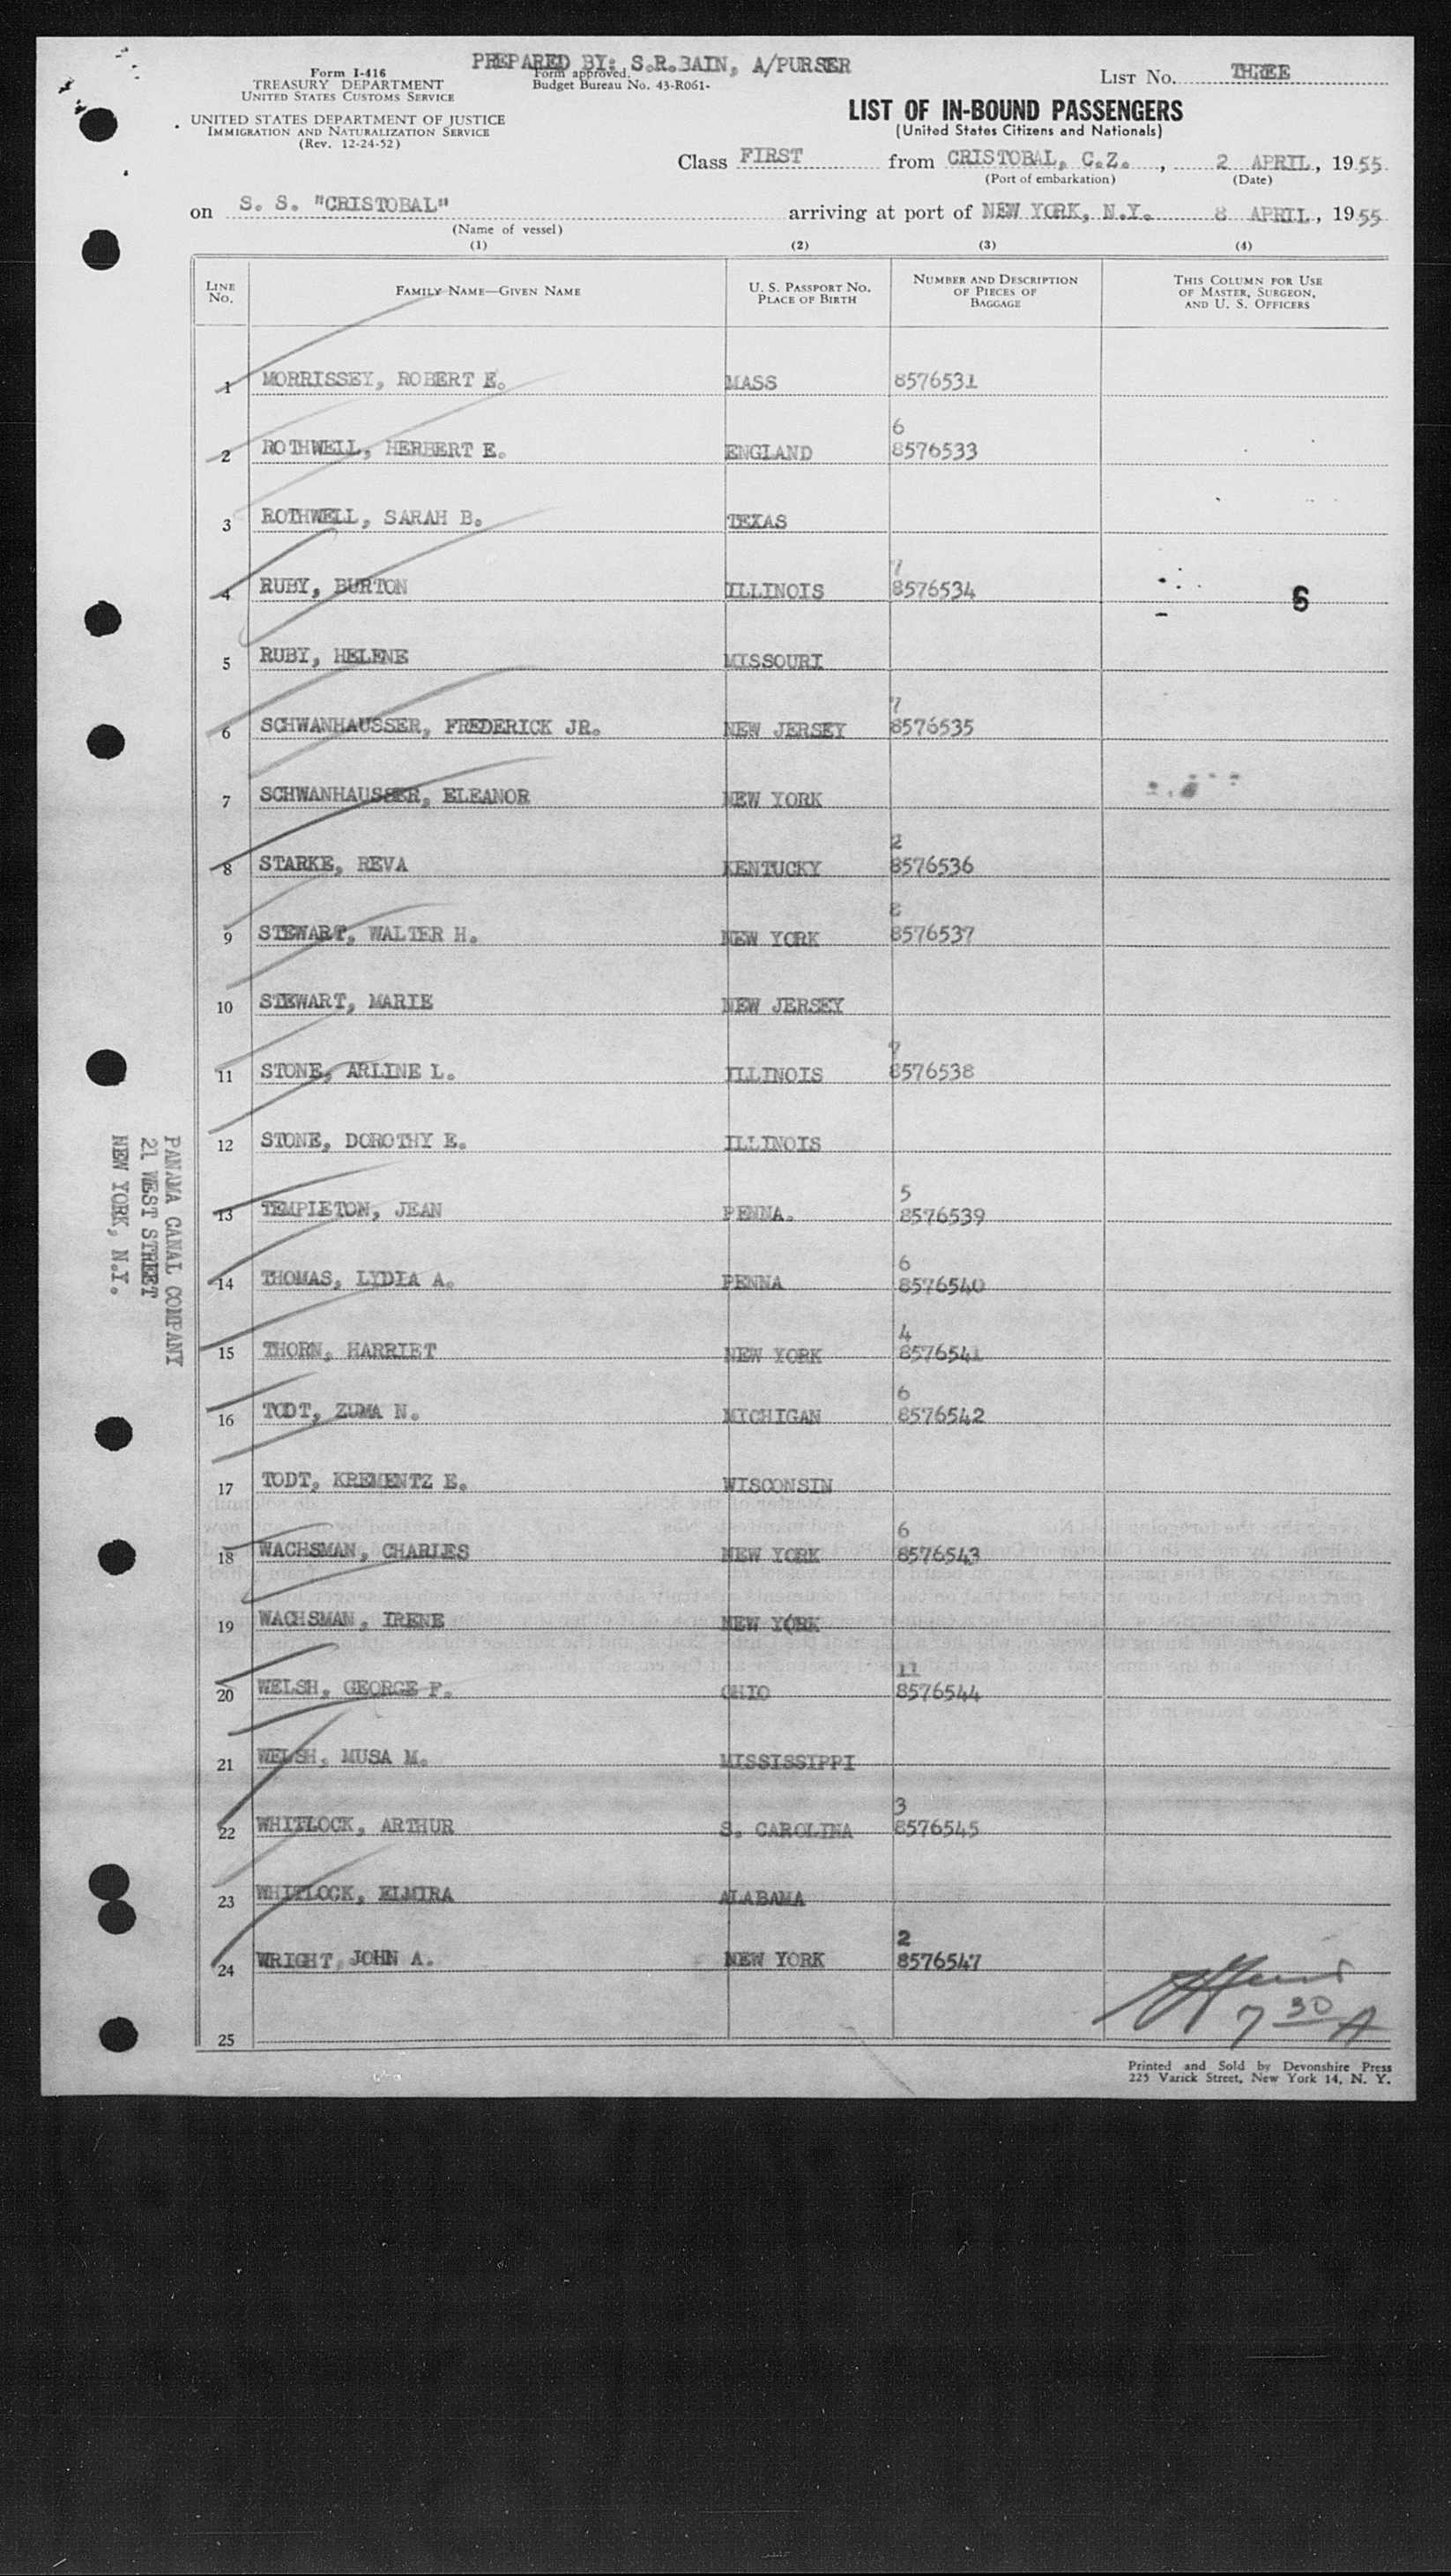 PREPARED BY: S.R.BAIN, A/PURSER
Form I-416
TREASURY DEPARTMENT
UNITED STATES CUSTOMS SERVICE
UNITED STATES DEPARTMENT OF JUSTICE
IMMIGRATION AND NATURALIZATION SERVICE
(Rev. 12-24-52)
Form approved.
Budget Bureau No. 43-R061-
LIST No. THREE
LIST OF IN-BOUND PASSENGERS
(United States Citizens and Nationals)
Class FIRST from CRISTOBAL, C.Z., 2 APRIL, 1955
(Port of embarkation) (Date)
on S. S. "CRISTOBAL" arriving at port of NEW YORK, N.Y. 8 APRIL, 1955
(Name of vessel)
(1) (2) (3) (4)
LINE No. FAMILY NAME—GIVEN NAME U. S. PASSPORT NO. PLACE OF BIRTH NUMBER AND DESCRIPTION OF PIECES OF BAGGAGE THIS COLUMN FOR USE OF MASTER, SURGEON, AND U. S. OFFICERS
1 MORRISSEY, ROBERT E. MASS 8576531
6
2 ROTHWELL, HERBERT E. ENGLAND 8576533
3 ROTHWELL, SARAH B. TEXAS
7
4 RUBY, BURTON ILLINOIS 8576534 6
5 RUBY, HELENE MISSOURI
7
6 SCHWANHAUSSER, FREDERICK JR. NEW JERSEY 8576535
7 SCHWANHAUSSER, ELEANOR NEW YORK
2
8 STARKE, REVA KENTUCKY 8576536
8
9 STEWART, WALTER H. NEW YORK 8576537
10 STEWART, MARIE NEW JERSEY
7
11 STONE, ARLINE L. ILLINOIS 8576538
12 STONE, DOROTHY E. ILLINOIS
5
13 TEMPLETON, JEAN PENNA. 8576539
6
14 THOMAS, LYDIA A. PENNA 8576540
4
15 THORN, HARRIET NEW YORK 8576541
6
16 TODT, ZUMA N. MICHIGAN 8576542
17 TODT, KREMENTZ E. WISCONSIN
6
18 WACHSMAN, CHARLES NEW YORK 8576543
19 WACHSMAN, IRENE NEW YORK
11
20 WELSH, GEORGE F. OHIO 8576544
21 WELSH, MUSA M. MISSISSIPPI
3
22 WHITLOCK, ARTHUR S. CAROLINA 8576545
23 WHITLOCK, ELMIRA ALABAMA
2
24 WRIGHT, JOHN A. NEW YORK 8576547
7 30 A
25
Printed and Sold by Devonshire Press
225 Varick Street, New York 14, N. Y.
PANAMA CANAL COMPANY
21 WEST STREET
NEW YORK, N.Y.